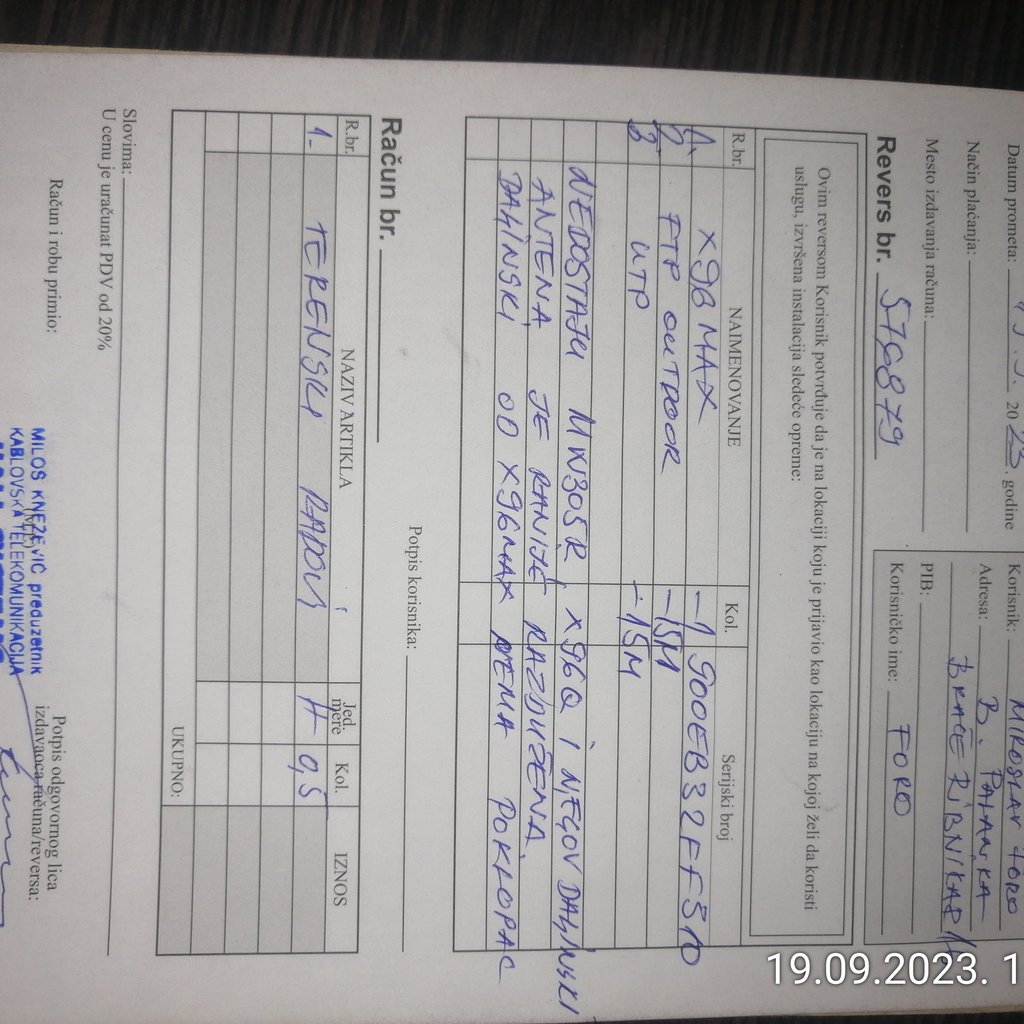 Datum prometa: 20 23. godine
Način plaćanja:
Mesto izdavanja računa:
Korisnik: MILOSLAV FORO
Adresa: B. PALANKA
BRAĆE RIBNIKAR
PIB:
Korisničko ime: FORO
Revers br. 576879
Ovim reversom Korisnik potvrđuje da je na lokaciji koju je prijavio kao lokaciju na kojoj želi da koristi
uslugu, izvršena instalacija sledeće opreme:
R.br. NAIMENOVANJE Kol. Serijski broj
1. X96 MAX -1 900EB32FF510
2. FTP OUTDOOR -15M
3. UTP -15M
NEDOSTAJU MW305R, X96Q I NJEGOV DALJINSKI
ANTENA JE RANIJE RAZDUŽENA
DALJINSKI OD X96MAX NEMA POKLOPAC
Potpis korisnika:
Račun br.
R.br. NAZIV ARTIKLA Jed. mere Kol. IZNOS
1. TERENSKI RADOVI H 0,5
UKUPNO:
Slovima:
U cenu je uračunat PDV od 20%
Račun i robu primio:
MILOŠ KNEŽEVIĆ preduzetnik
KABLOVSKA TELEKOMUNIKACIJA
Potpis odgovornog lica
izdavaoca računa/reversa:
19.09.2023. 1